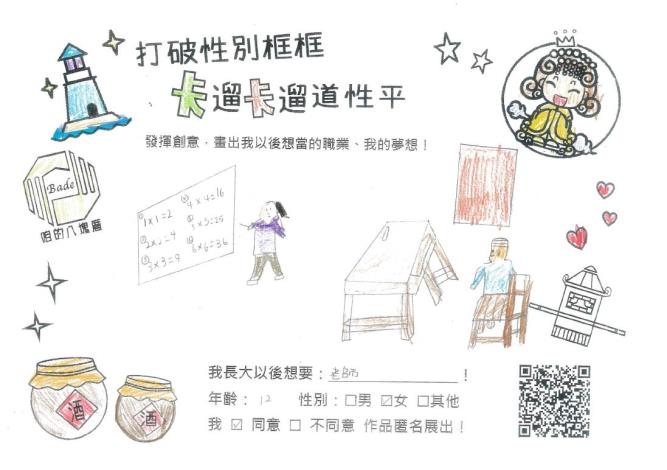 打破性別框框
卡遛卡遛道性平
發揮創意，畫出我以後想當的職業、我的夢想！
Bade
咱的八塊厝
① 1x1=2
② 2x2=4
③ 3x3=9
④ 4x4=16
⑤ 5x5=25
⑥ 6x6=36
酒
酒
我長大以後想要：老師！
年齡：12 性別：□男 ☑女 □其他
我 ☑ 同意 □ 不同意 作品匿名展出！